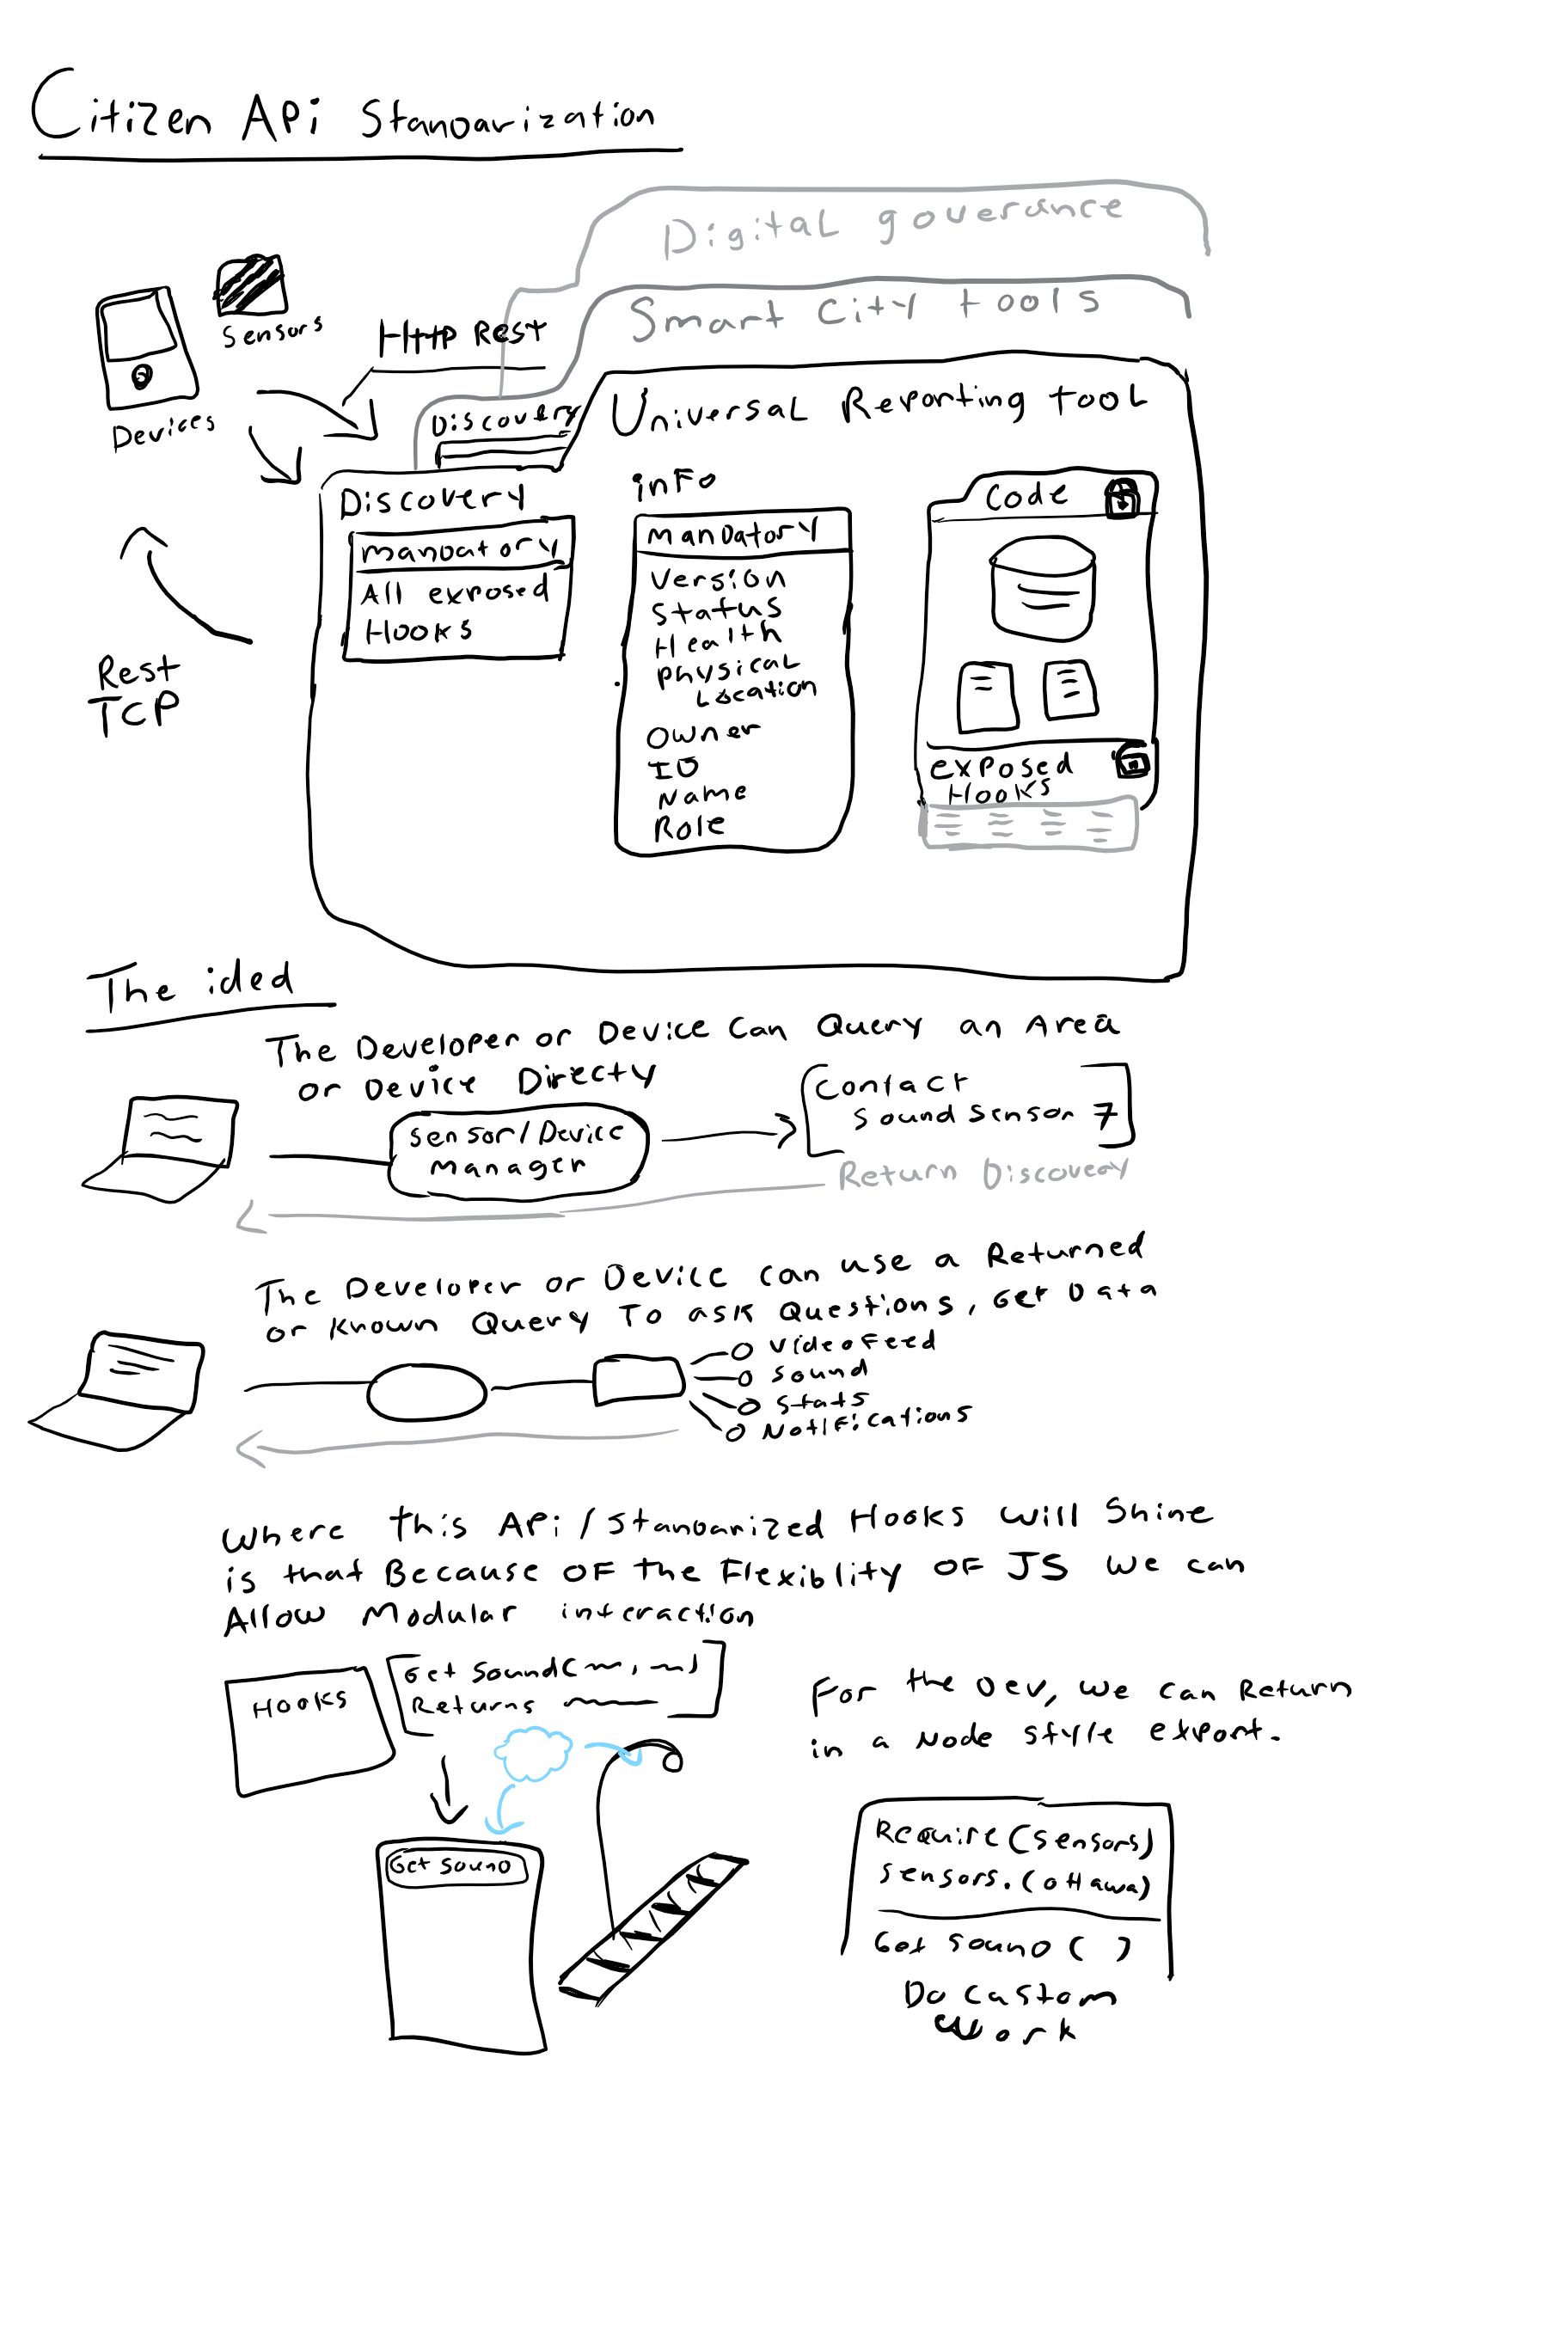 Citizen Api Standarization
Digital goverance
Smart City tools
Sensors
Devices
Http Rest
Discovery
Universal Reporting tool
Discovery
mandatory
All exposed
Hooks
info
mandatory
Version
Status
Health
Physical
Location
Owner
ID
Name
Role
Code
exposed
Hooks
Rest
TCP
The idea
The Developer or Device Can Query an Area
or Device Directy
Sensor/Device
manager
Contact
Sound Sensor 7
Return Discovery
The Developer or Device can use a Returned
or known Query To ask Questions, Get Data
Video Feed
Sound
Stats
Notifications
Where this Api/Standarized Hooks will Shine
is that Because of the Flexiblity of JS we can
Allow Modular interaction
Hooks
Get Sound( , )
Returns
Get Sound
For the Dev, we can Return
in a Node style export.
Require(sensors)
sensors.(ottawa)
Get Sound ( )
Do Custom
Work